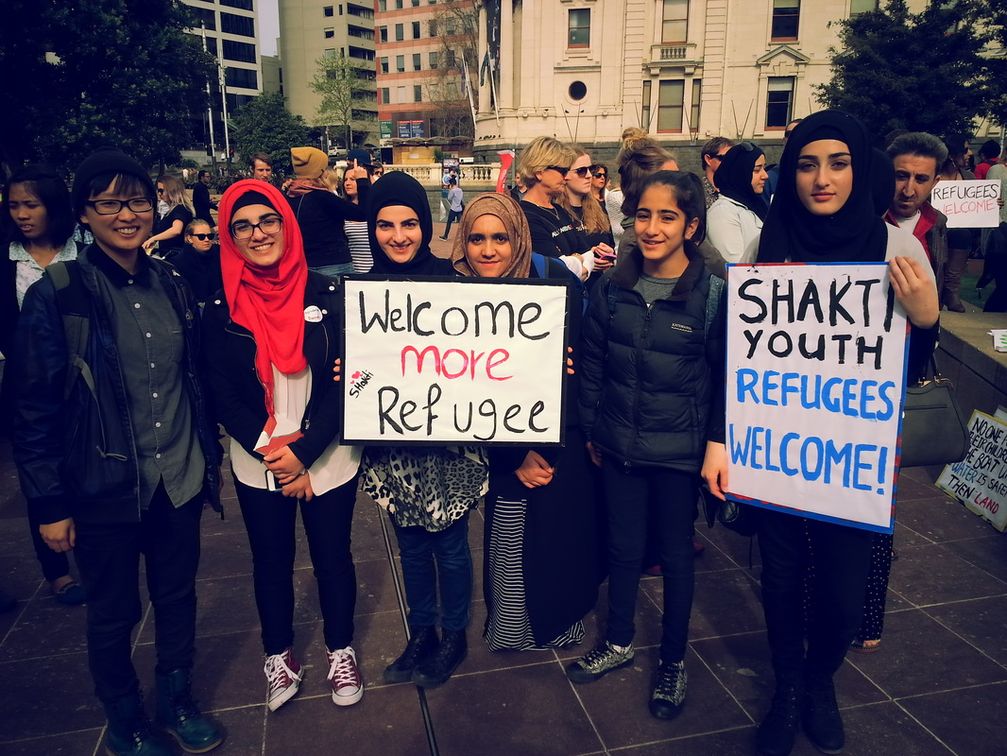 Welcome
more
Shakti
Refugee
SHAKTI
YOUTH
REFUGEES
WELCOME!
REFUGEES
WELCOME
NO ONE
WATER IS SAFER
THEN LAND